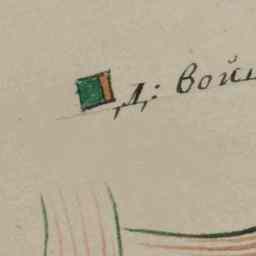 Д: Войш